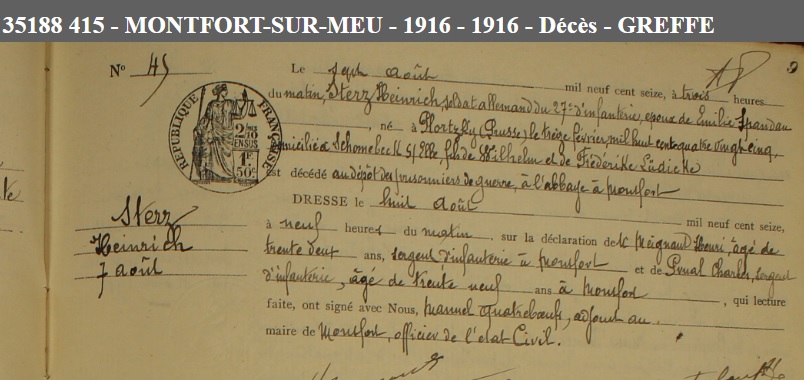 35188 415 - MONTFORT-SUR-MEU - 1916 - 1916 - Décès - GREFFE
N° 45
Le sept août mil neuf cent seize, à trois heures
du matin, Sterz Heinrich, soldat allemand du 27e d'infanterie, époux de Emilie Spandau
, né à Plortzky (Prusse) le treize février mil huit cent quatre vingt cinq,
domicilié à Schomebeck S/ Elbe, fils de Wilhelm et de Frédérike Lüdicke
est décédé au dépôt des prisonniers de guerre, à l'abbaye à Montfort
RÉPUBLIQUE FRANÇAISE
2/10es EN SUS
1F 50c
DRESSÉ le huit août mil neuf cent seize,
Sterz
Heinrich
7 août
à neuf heures du matin, sur la déclaration de Henri, âgé de
trente deux ans, sergent d'infanterie à Montfort et de Prual Charles, sergent
d'infanterie, âgé de trente neuf ans à Montfort, qui lecture
faite, ont signé avec Nous, Manuel Quatreboeufs, adjoint au
maire de Montfort, officier de l'état Civil.